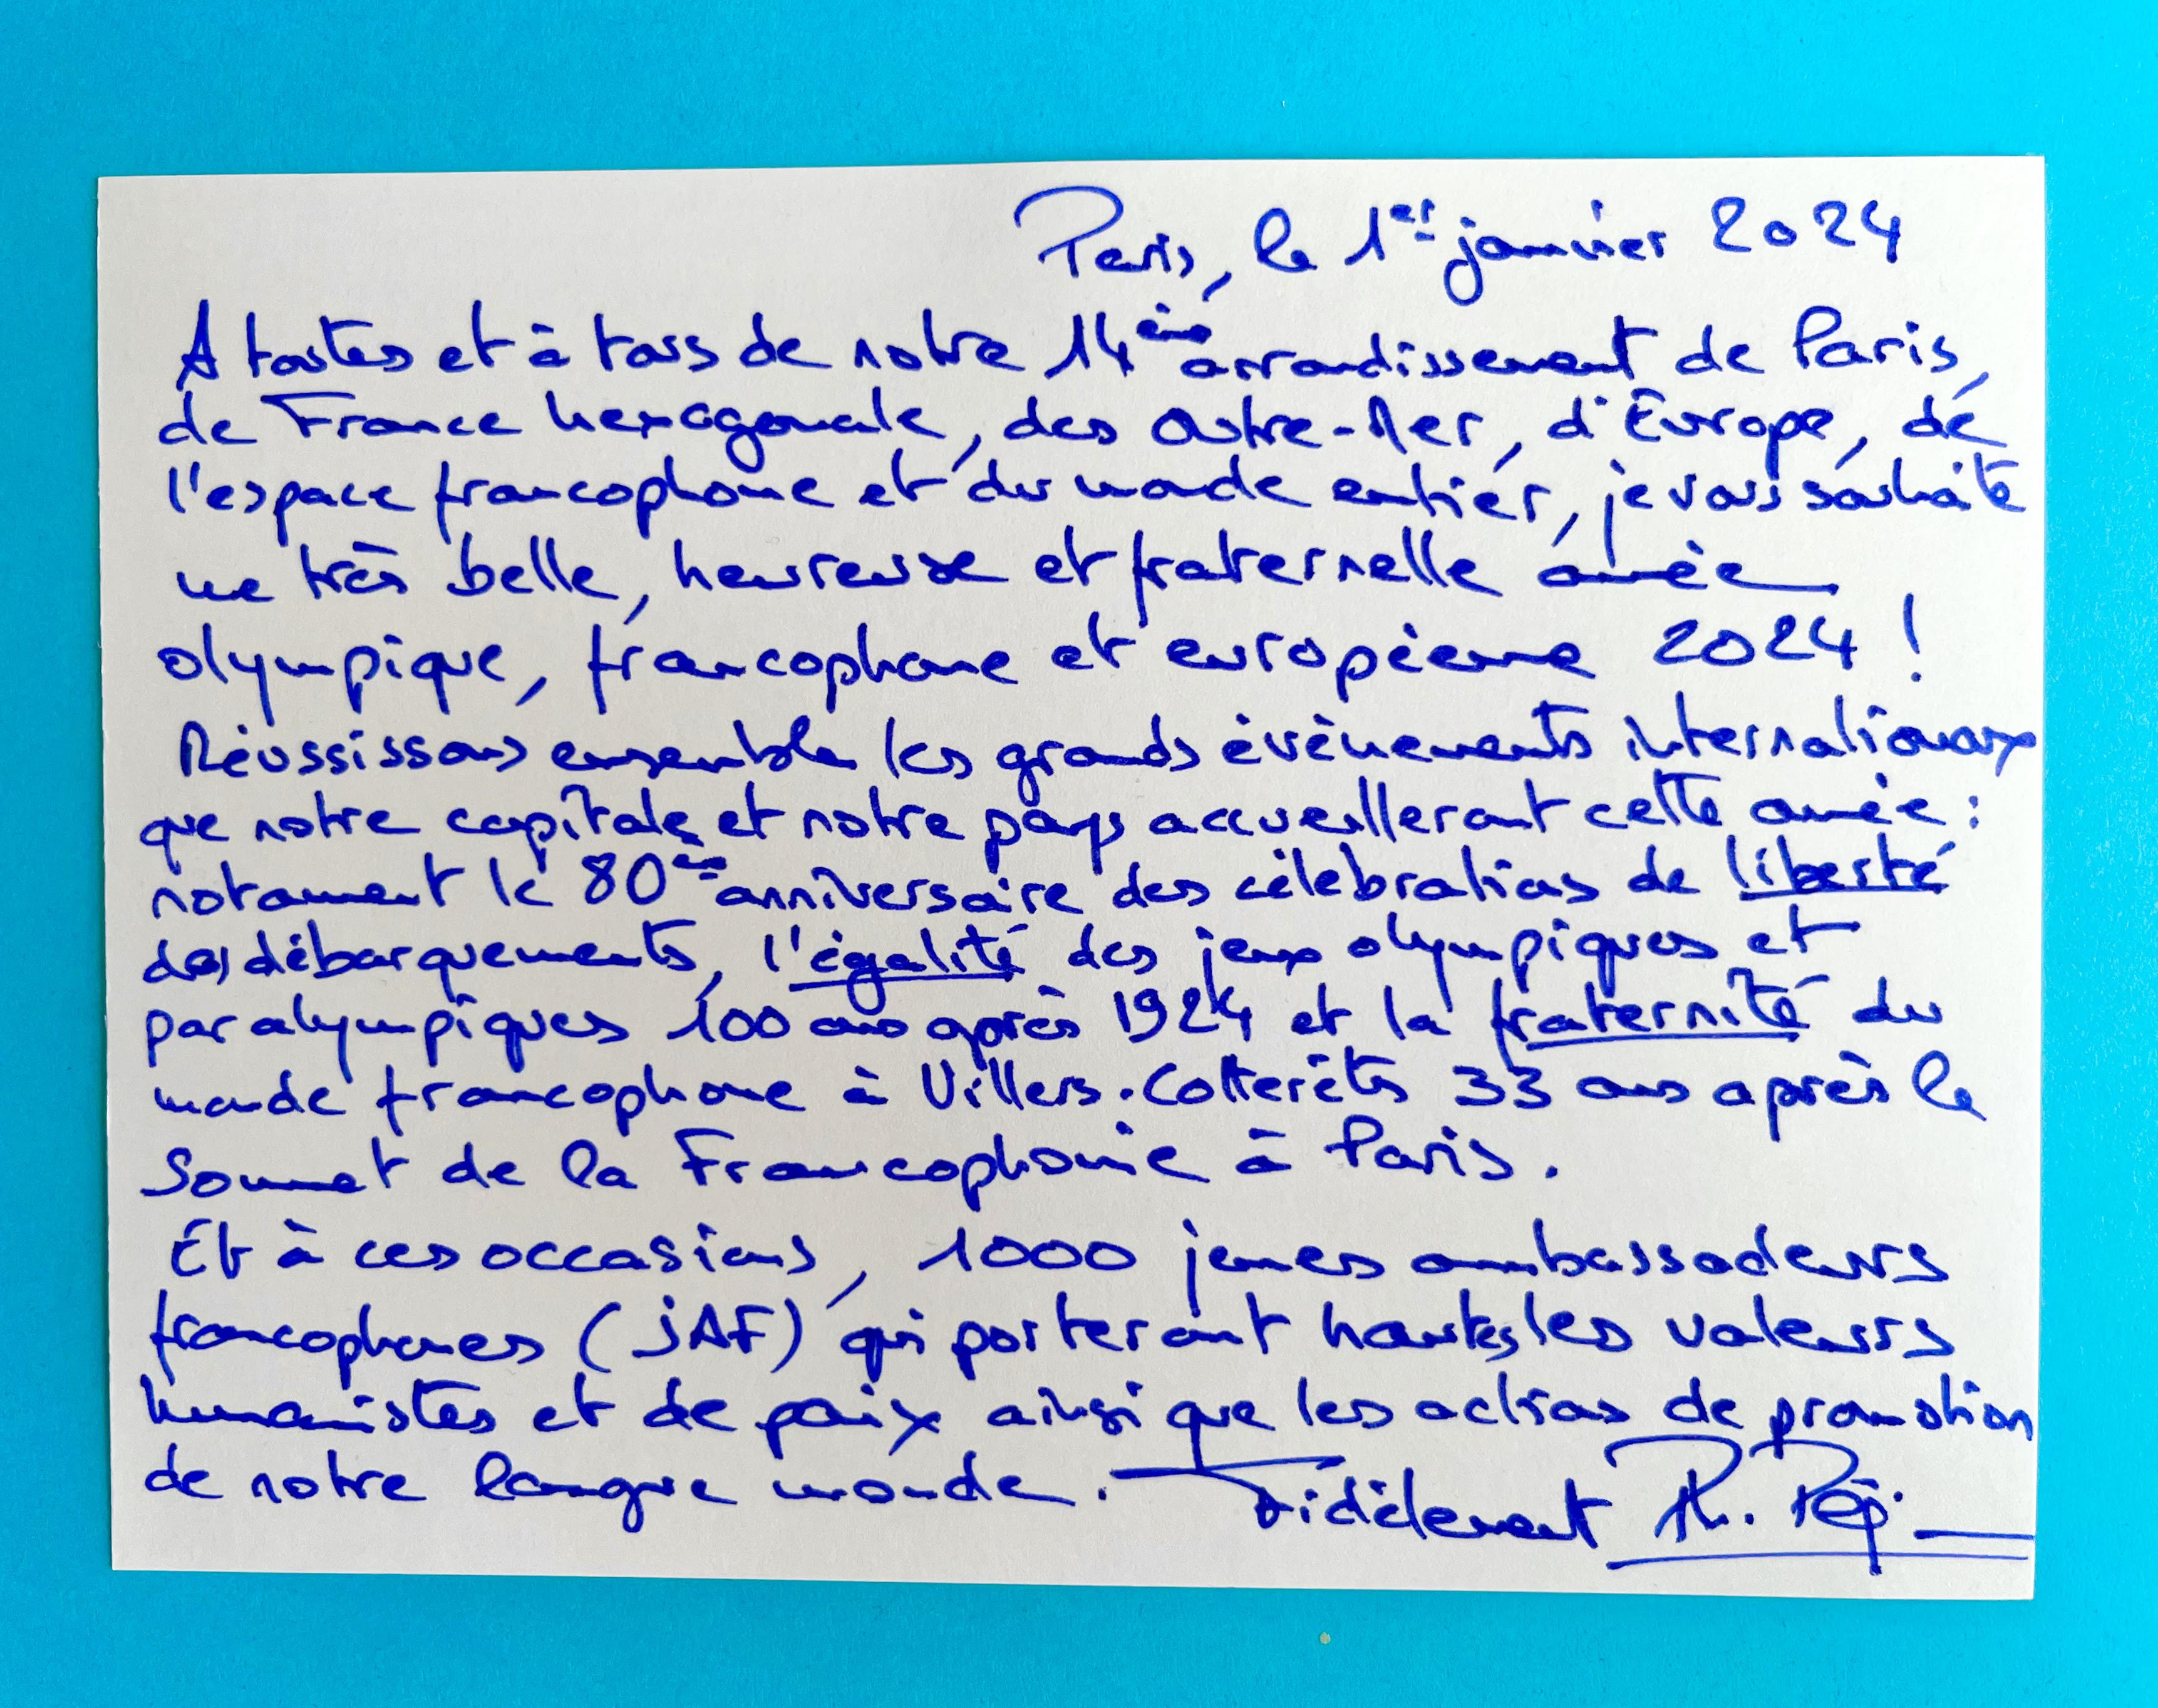 Paris, le 1er janvier 2024
A toutes et à tous de notre 14ème arrondissement de Paris,
de France hexagonale, des Outre-Mer, d'Europe, de
l'espace francophone et du monde entier, je vous souhaite
une très belle, heureuse et fraternelle année
olympique, francophone et européenne 2024 !
Réussissons ensemble les grands évènements internationaux
que notre capitale et notre pays accueilleront cette année :
notamment le 80ème anniversaire des célébrations de liberté
des débarquements, l'égalité des jeux olympiques et
paralympiques 100 ans après 1924 et la fraternité du
monde francophone à Villers-Cotterêts 33 ans après le
Sommet de la Francophonie à Paris.
Et à ces occasions, 1000 jeunes ambassadeurs
francophones (JAF) qui porteront hautes les valeurs
humanistes et de paix ainsi que les actions de promotion
de notre langue monde. Fidèlement Ph.